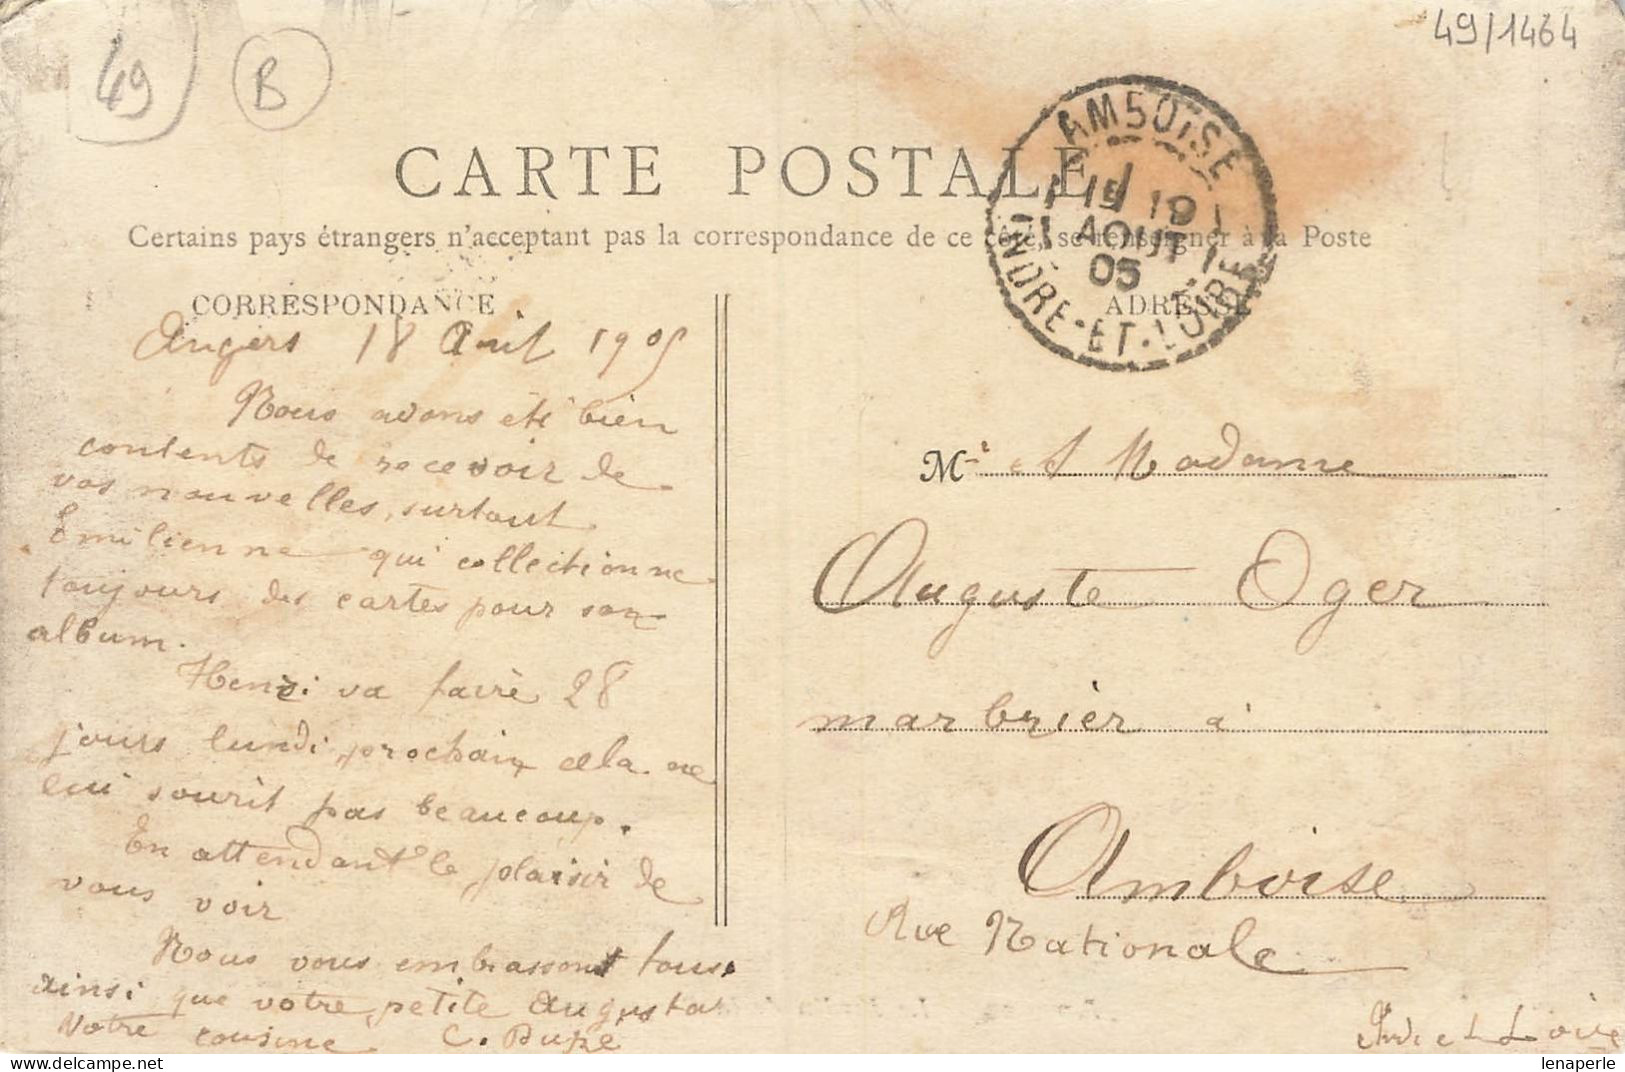 49 B 49/1464
CARTE POSTALE
Certains pays étrangers n'acceptent pas la correspondance de ce côté, se renseigner à la Poste
AMBOISE
INDRE-ET-LOIRE
AOUT
05
CORRESPONDANCE
Angers 18 Aout 1905
Nous avons été bien
contents de recevoir de
vos nouvelles, surtout
Emilienne qui collectionne
toujours des cartes pour son
album.
Henri va faire 28
jours lundi prochain cela ne
lui sourit pas beaucoup.
En attendant le plaisir de
vous voir
Nous vous embrassons tous
ainsi que votre petite Augusta
Votre cousine C.
ADRESSE
M. et Madame
Auguste Oger
marbrier à
Amboise
Rue Nationale
Indre et Loire
lenaperle